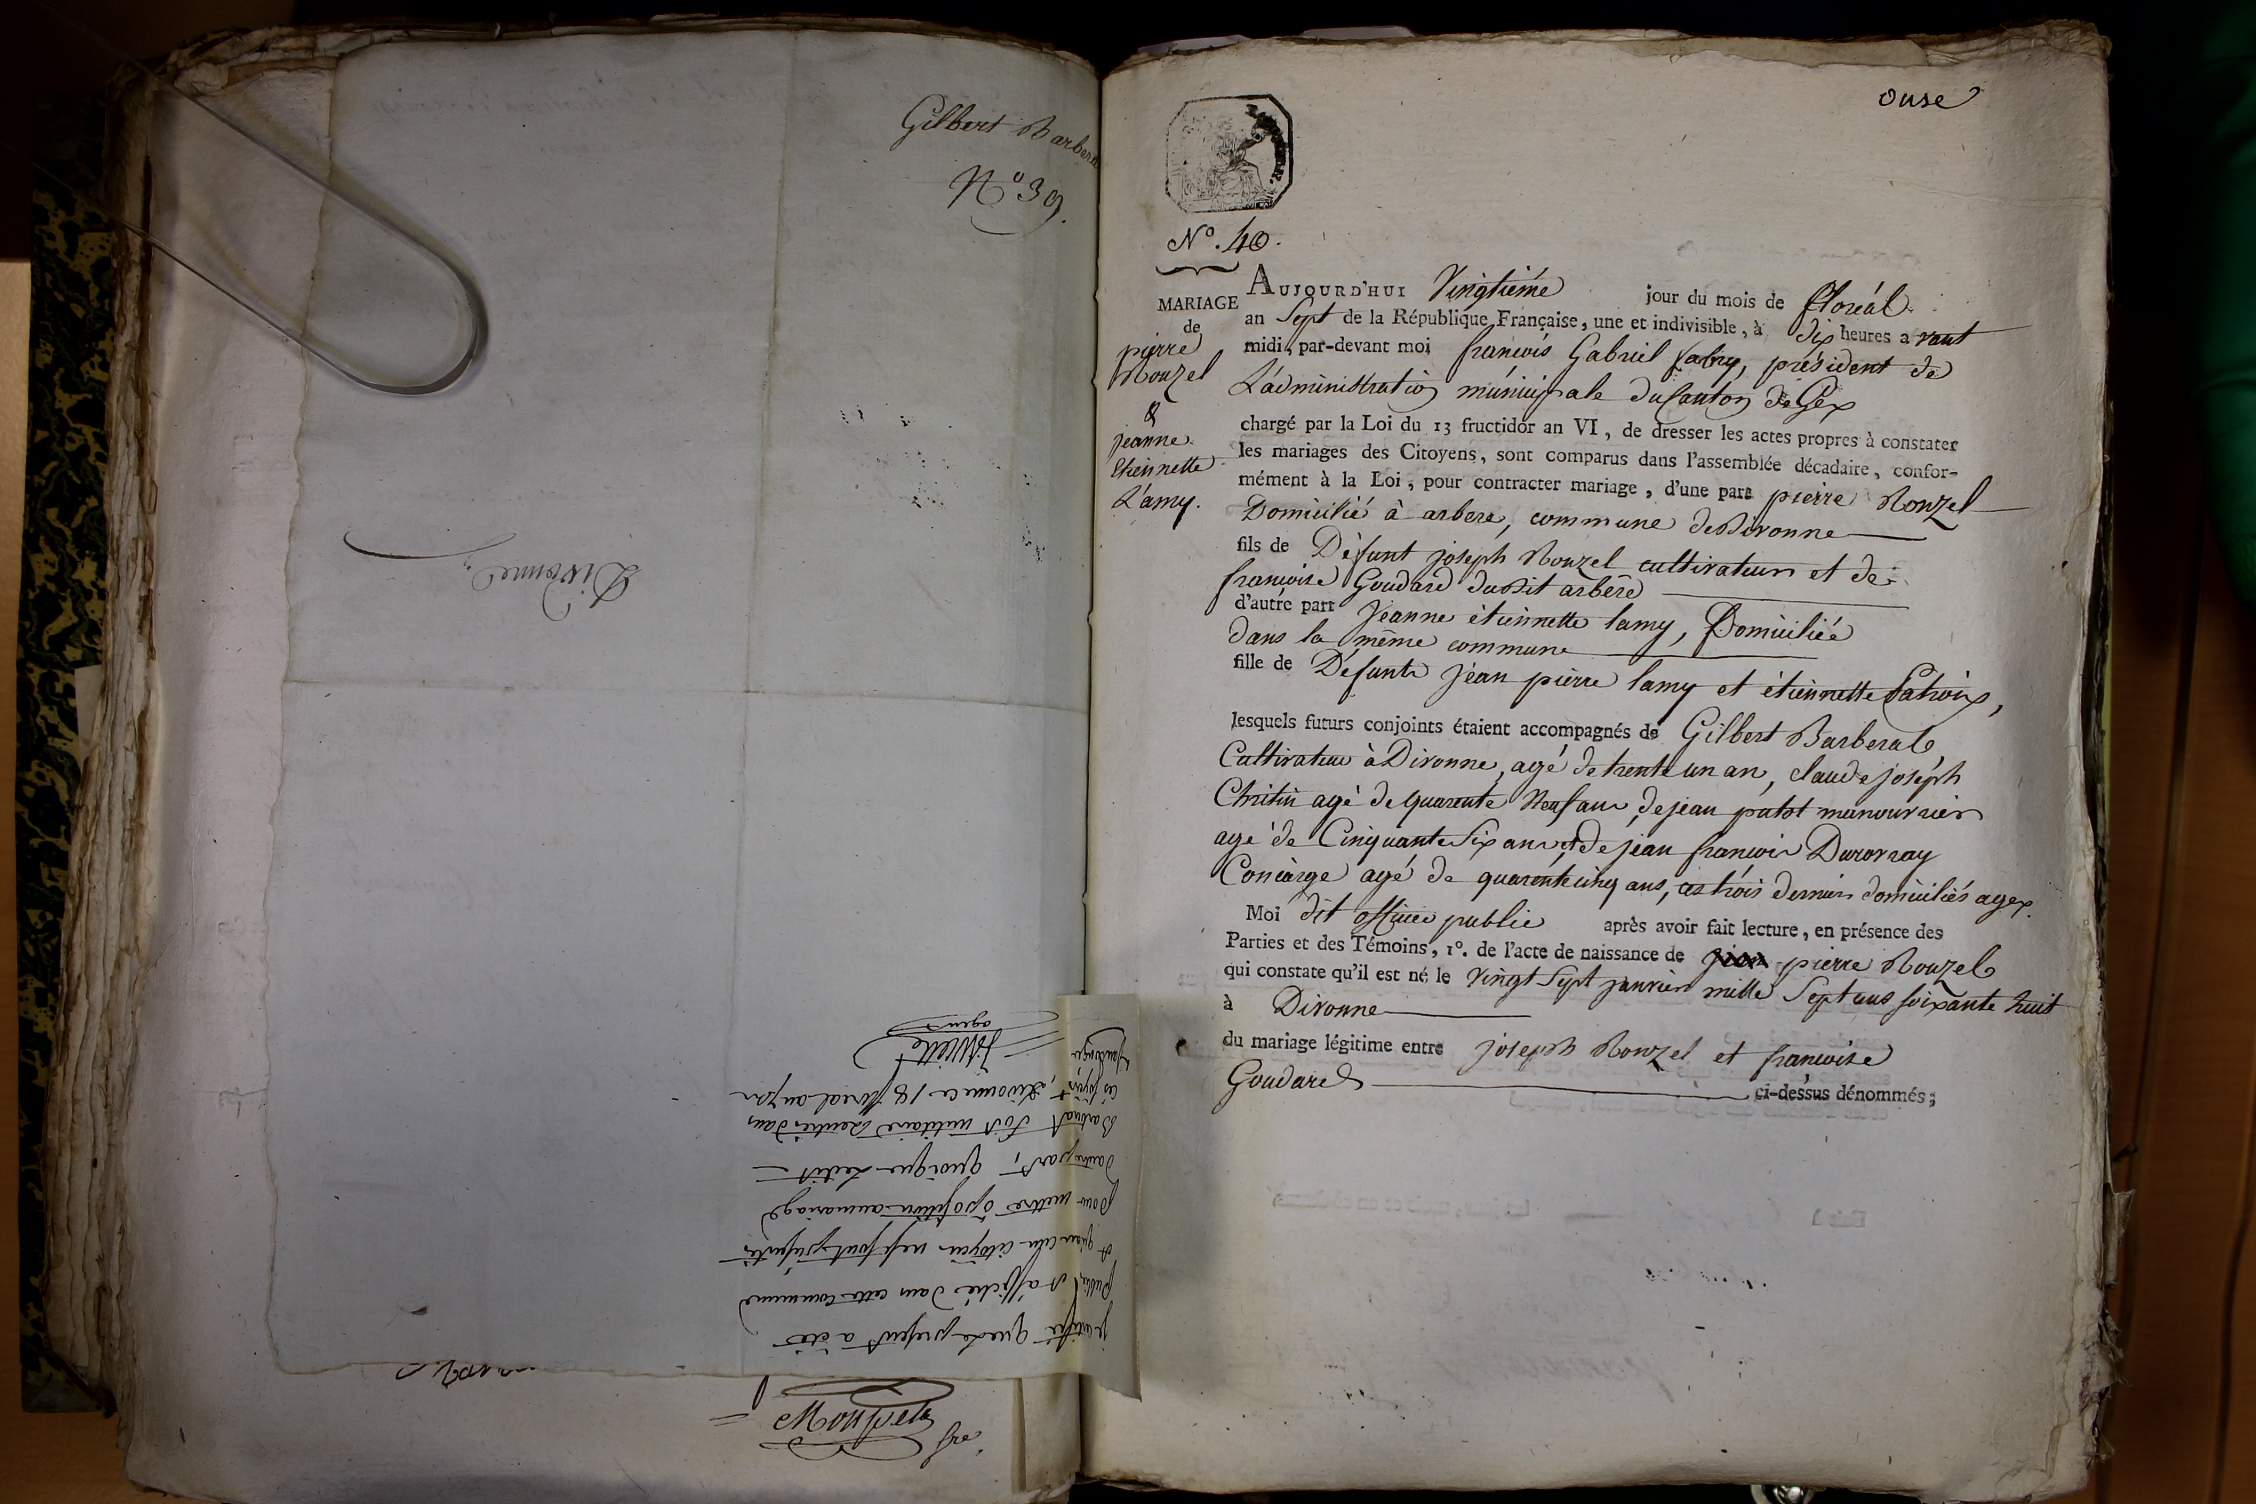 Gilbert Barbera
N° 39.
Divonne
Je certifie que le present a été
publié et affiché dans cette commune
et qu'aucun citoyen ne s'est présenté
pour mettre oposition au mariage
d'autre part, quoique ledit
Barberat soit militaire
Divonne ce 18 floreal an 7
agent
Mouget
ouse
N°. 40.
MARIAGE
de
pierre
Rouzel
&
jeanne
Etiennette
L'amy.
AUJOURD'HUI Vingtiéme jour du mois de floréal
an Sept de la République Française, une et indivisible, à dix heures avant
midi, par-devant moi françois Gabriel fabry, président de
L'administration municipale du Canton de Gex
chargé par la Loi du 13 fructidor an VI, de dresser les actes propres à constater
les mariages des Citoyens, sont comparus dans l'assemblée décadaire, confor-
mément à la Loi, pour contracter mariage, d'une part pierre Rouzel
Domicilié à arbere, commune de Divonne
fils de Défunt joseph Rouzel cultivateur et de
françoise Goudard dudit arbère
d'autre part Jeanne étiennette lamy, Domiciliée
dans la même commune
fille de Défunts jean pierre lamy et étiennette
lesquels futurs conjoints étaient accompagnés de Gilbert Barberat
Cultivateur à Divonne, agé de trente un an, claude joseph
Christin agé de quarente Neuf ans, de jean patot manouvrier
agé de Cinquante Six ans, et de jean françois Duvovray
Conciérge agé de quarente cinq ans, ces trois derniers domiciliés a gex.
Moi dit officier public après avoir fait lecture, en présence des
Parties et des Témoins, 1°. de l'acte de naissance de pierre Rouzel
qui constate qu'il est né le vingt Sept janvier mille Sept cens soixante huit
à Divonne
du mariage légitime entre joseph Rouzel et françoise
Goudard ci-dessus dénommés;